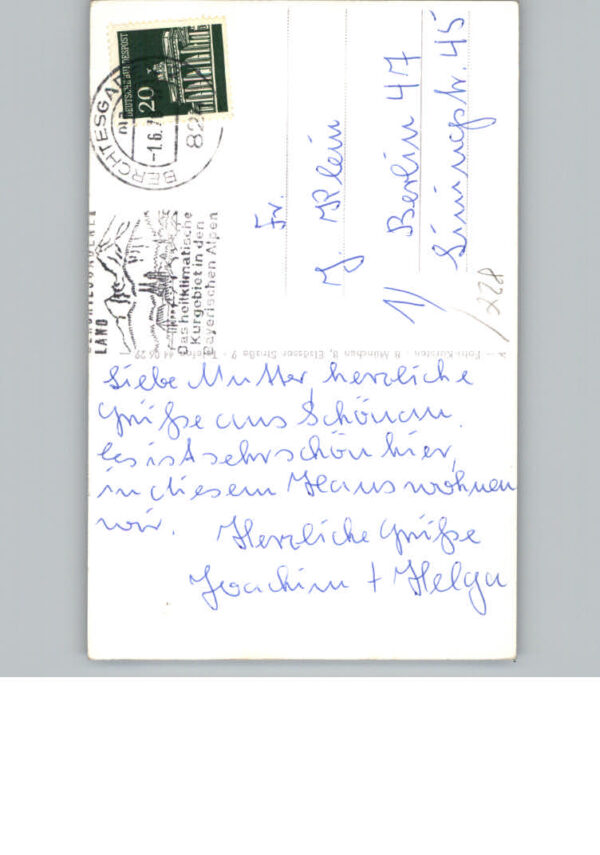 Liebe Mutter, herzliche
Grüße aus Schönau.
Es ist sehr schön hier,
in diesem Haus wohnen
wir. Herzliche Grüße
Joachim + Helga
Fr.
J. Klein
1/ Berlin 47
45
228
DEUTSCHE BUNDESPOST
20
BERCHTESGA
-1.6.7
82
LAND
Das heilklimatische
Kurgebiet in den
Bayerischen Alpen
8 München 8, Elsässer Straße 9 - Telefon 44 06 29